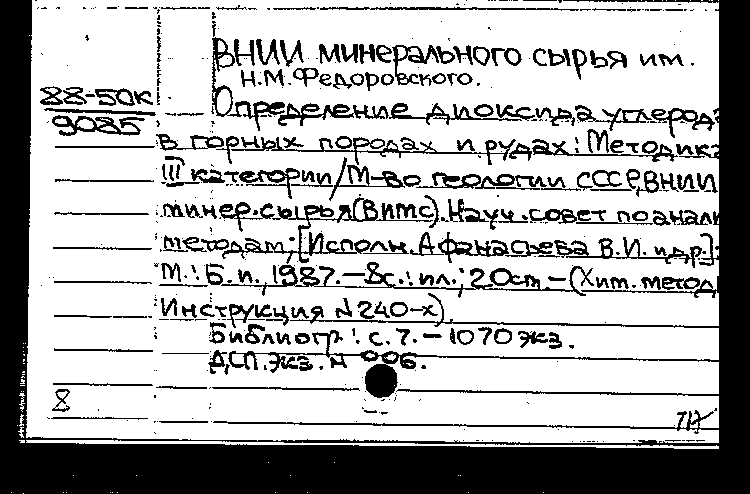 ВНИИ минерального сырья им.
Н.М.Федоровского.
88-50к
9085
Определение диоксида углерод
в горных породах и рудах: Методика
III категории/М-во геологии СССР, ВНИИ
минер.сырья(ВИМС). Науч.совет по анали
методам; [Исполн. Афанасьева В.И. и др.]:
М.: Б.и., 1987.-8с.: ил.; 20см.-(Хим. метод
Инструкция №240-х).
Библиогр.: с.7.-1070 экз.
ДСП. экз. № 006.
8